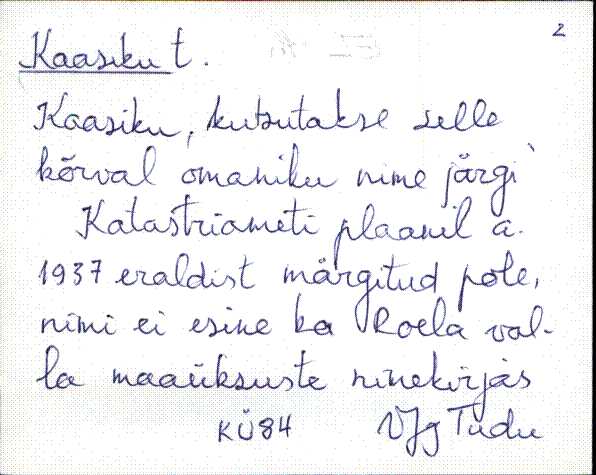 2
Kaasiku t.
Kaasiku, kutsutakse selle
kõrval omaniku nime järgi
Katastriameti plaanil a.
1937 eraldist märgitud pole,
nimi ei esine ka Roela val-
la maaüksuste nimekirjas
KÜ84 VJg Tudu